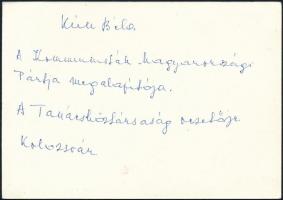 Kun Béla
A Kommunisták Magyarországi
Pártja megalapítója.
A Tanácsköztársaság vezetője
Kolozsvár